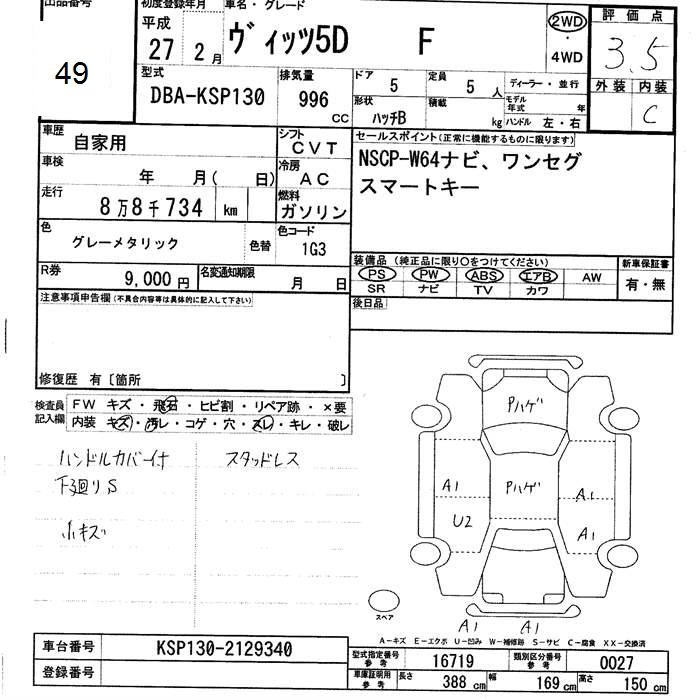 出品番号
49
初度登録年月
平成
27 2月
車名・グレード
ヴィッツ5D F
2WD
・
4WD
評価点
3.5
外装 内装
C
型式
DBA-KSP130
排気量
996
CC
ドア 5
定員 5 人
ディーラー・並行
形状 ハッチB
積載 kg
モデル年式 年
ハンドル 左・右
車歴 自家用
シフト CVT
車検 年 月( 日)
冷房 AC
走行 8万8千734 km
燃料 ガソリン
色 グレーメタリック 色替
色コード 1G3
R券 9,000円
名変通知期限 月 日
セールスポイント(正常に機能するものに限ります)
NSCP-W64ナビ、ワンセグ
スマートキー
装備品 (純正品に限り○をつけてください)
PS PW ABS エアB AW
SR ナビ TV カワ
新車保証書
有・無
後日品
注意事項申告欄(不具合内容等は具体的に記入して下さい)
修復歴 有〔箇所 〕
検査員記入欄
FW キズ・飛石・ヒビ割・リペア跡・×要
内装 キズ・汚レ・コゲ・穴・スレ・キレ・破レ
ハンドルカバー付
スタッドレス
下廻りS
小キズ
Pハゲ
Pハゲ
A1
U2
A1
A1
スペア
A1 A1
A-キズ E-エクボ U-凹み W-補修跡 S-サビ C-腐食 XX-交換済
車台番号 KSP130-2129340
登録番号
型式指定番号 参考 16719
類別区分番号 参考 0027
車庫証明用 参考
長さ 388 cm
幅 169 cm
高さ 150 cm